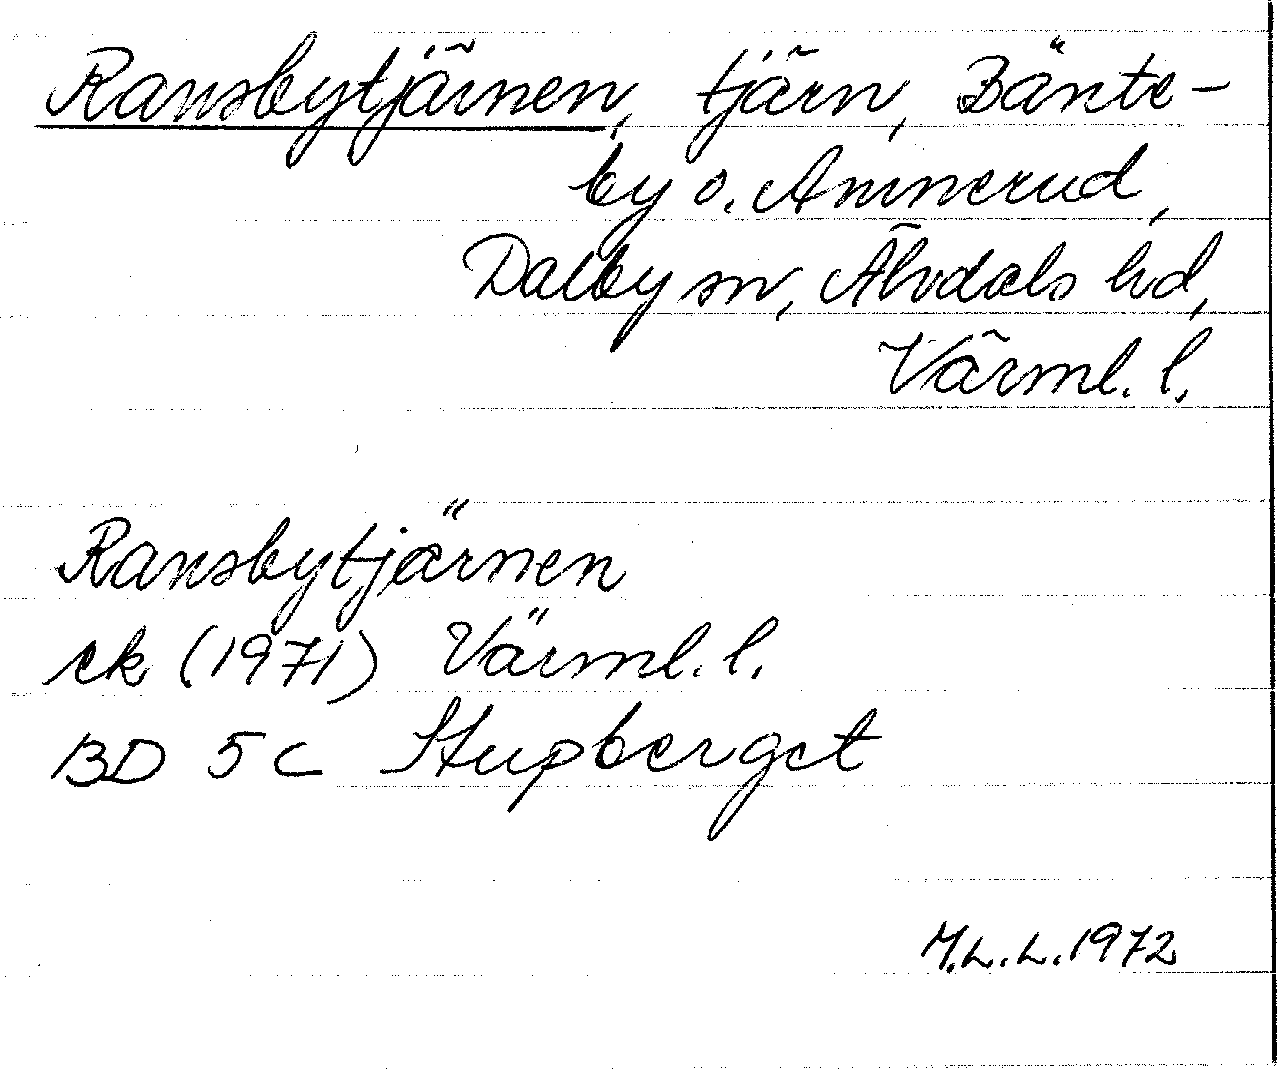 Ransbytjärnen, tjärn, Bänte-
by o. Amnerud,
Dalby sn, Älvdals hd,
Värml. l.
Ransbytjärnen
ek (1971) Värml. l.
BD 5 C Stupberget
M.L.L. 1972